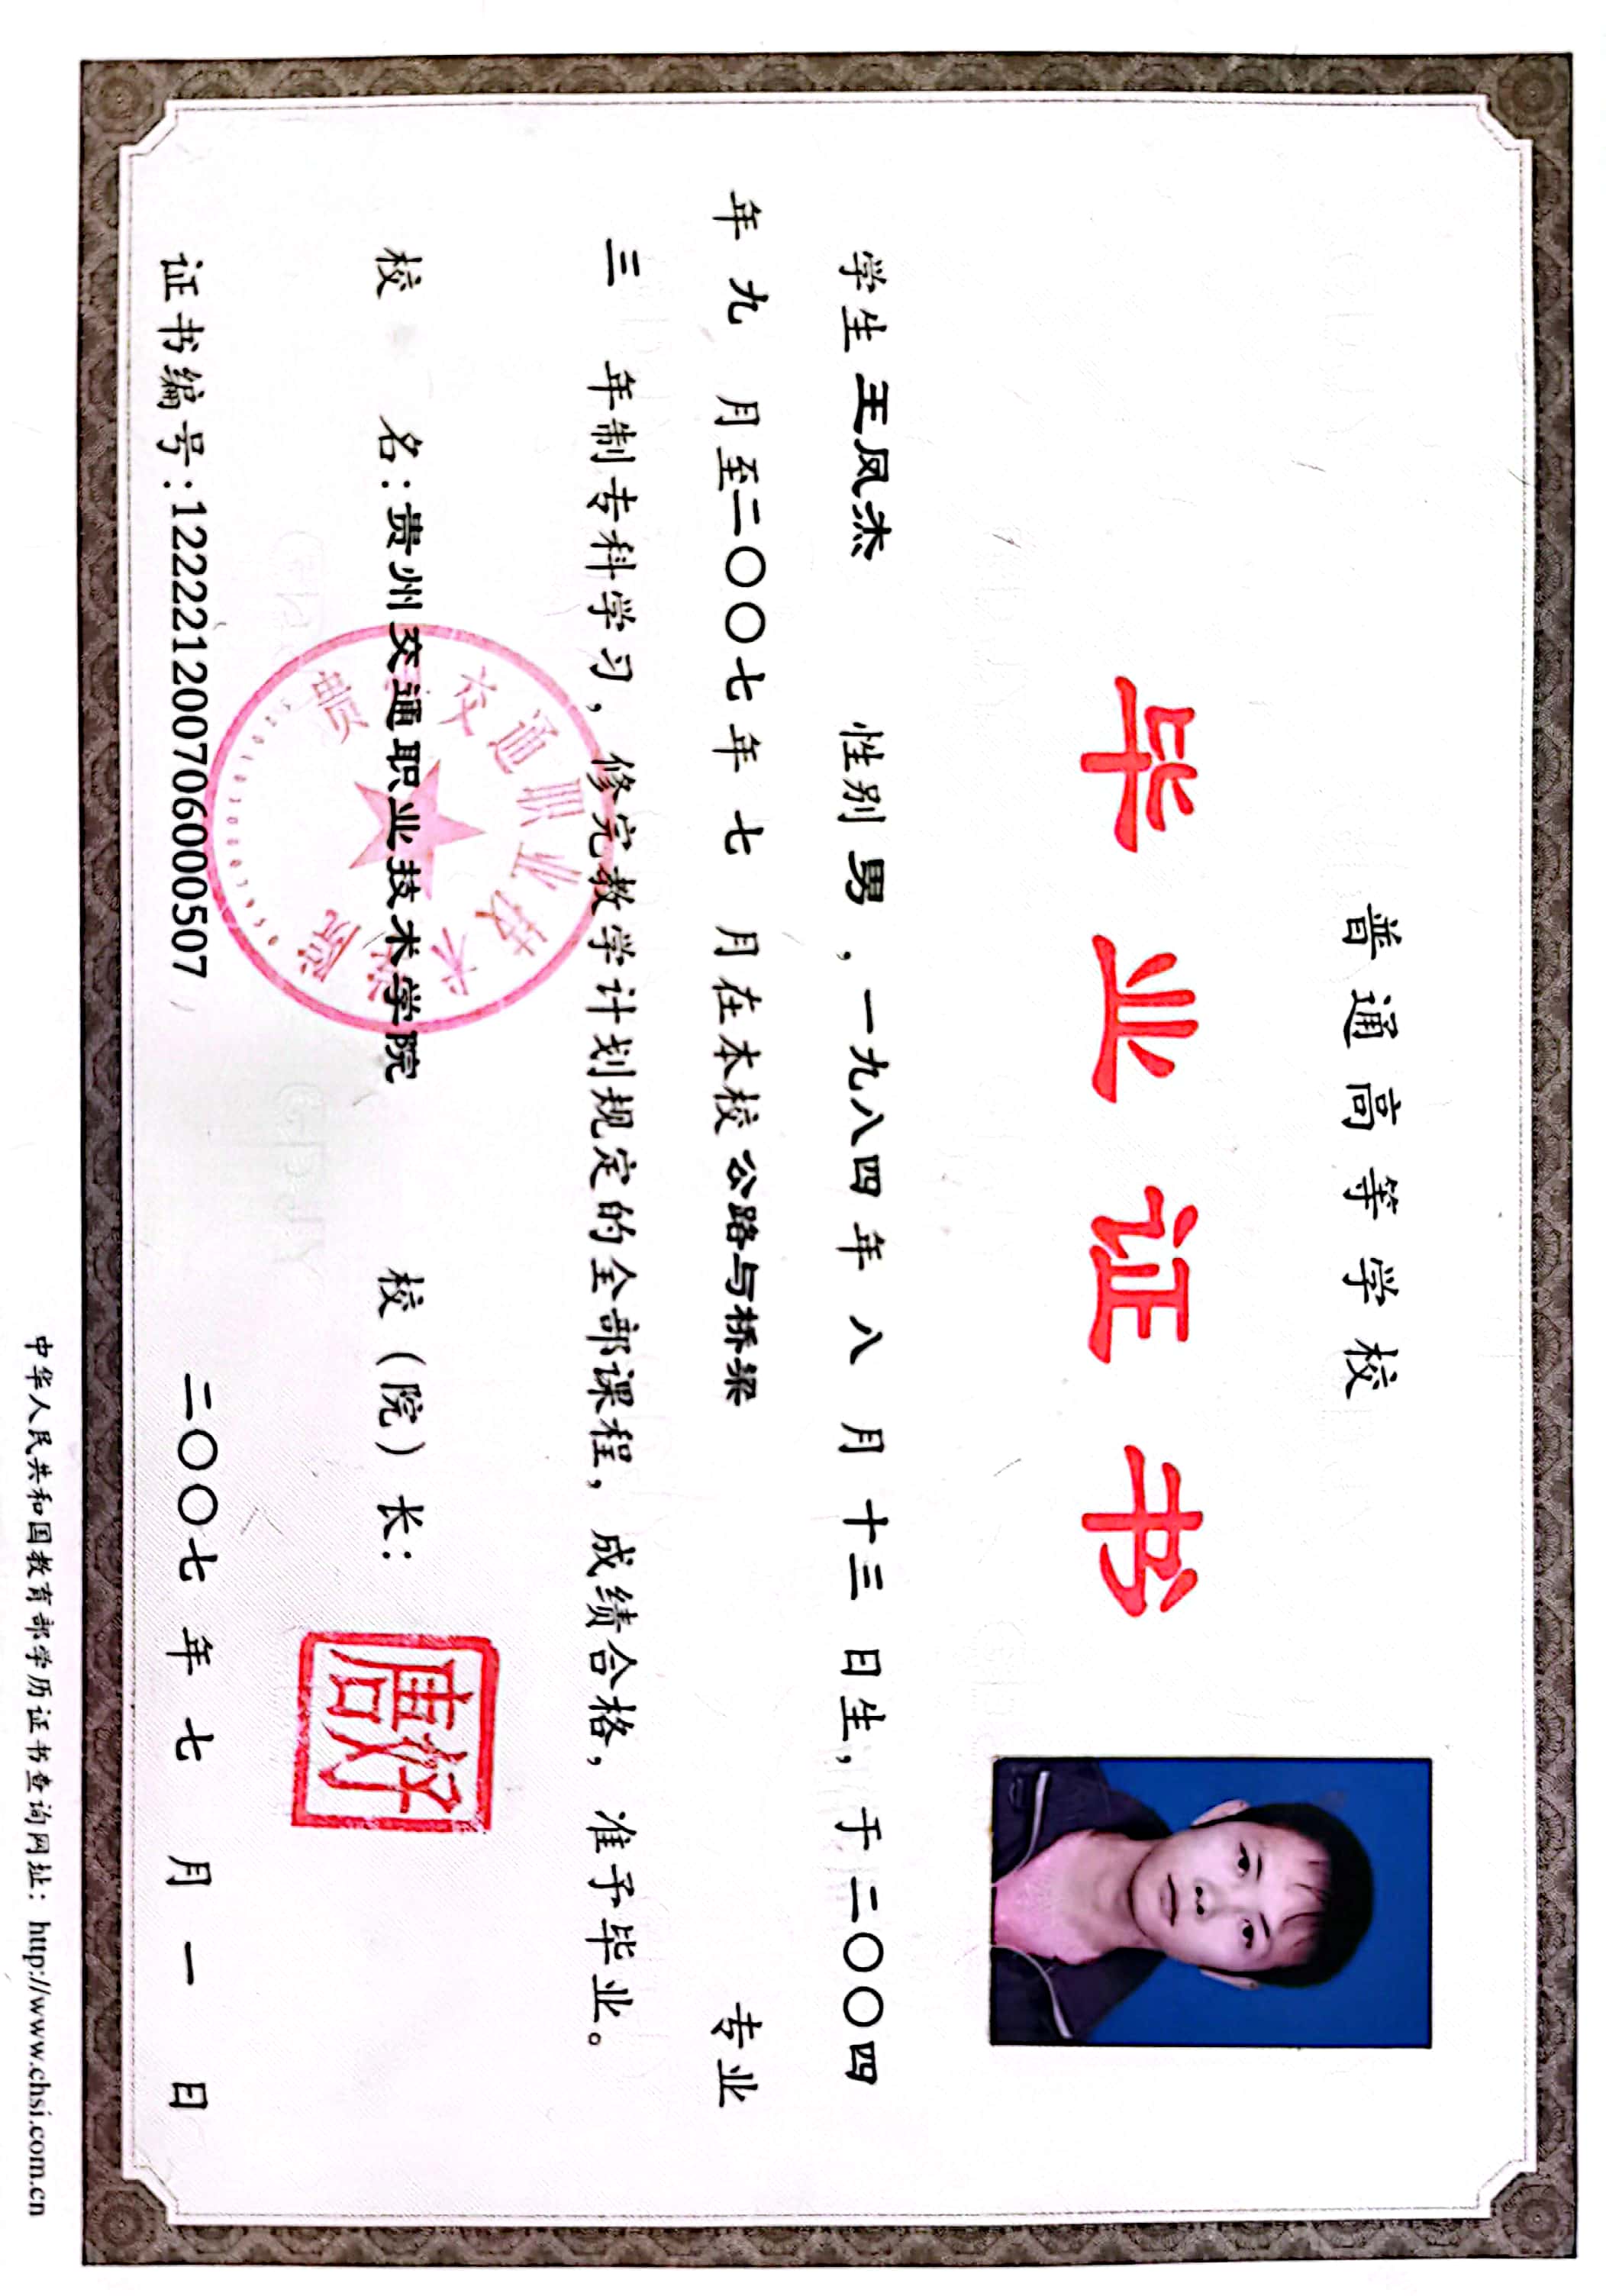 普通高等学校
毕业证书
学生 王凤杰 性别 男 ，一九八四 年 八 月 十三 日生，于二〇〇四
年 九 月至二〇〇七 年 七 月在本校 公路与桥梁 专业
三 年制专科学习，修完教学计划规定的全部课程，成绩合格，准予毕业。
校 名：贵州交通职业技术学院 校（院）长：
证书编号：122221200706000507 二〇〇七 年 七 月 一 日
中华人民共和国教育部学历证书查询网址：http://www.chsi.com.cn